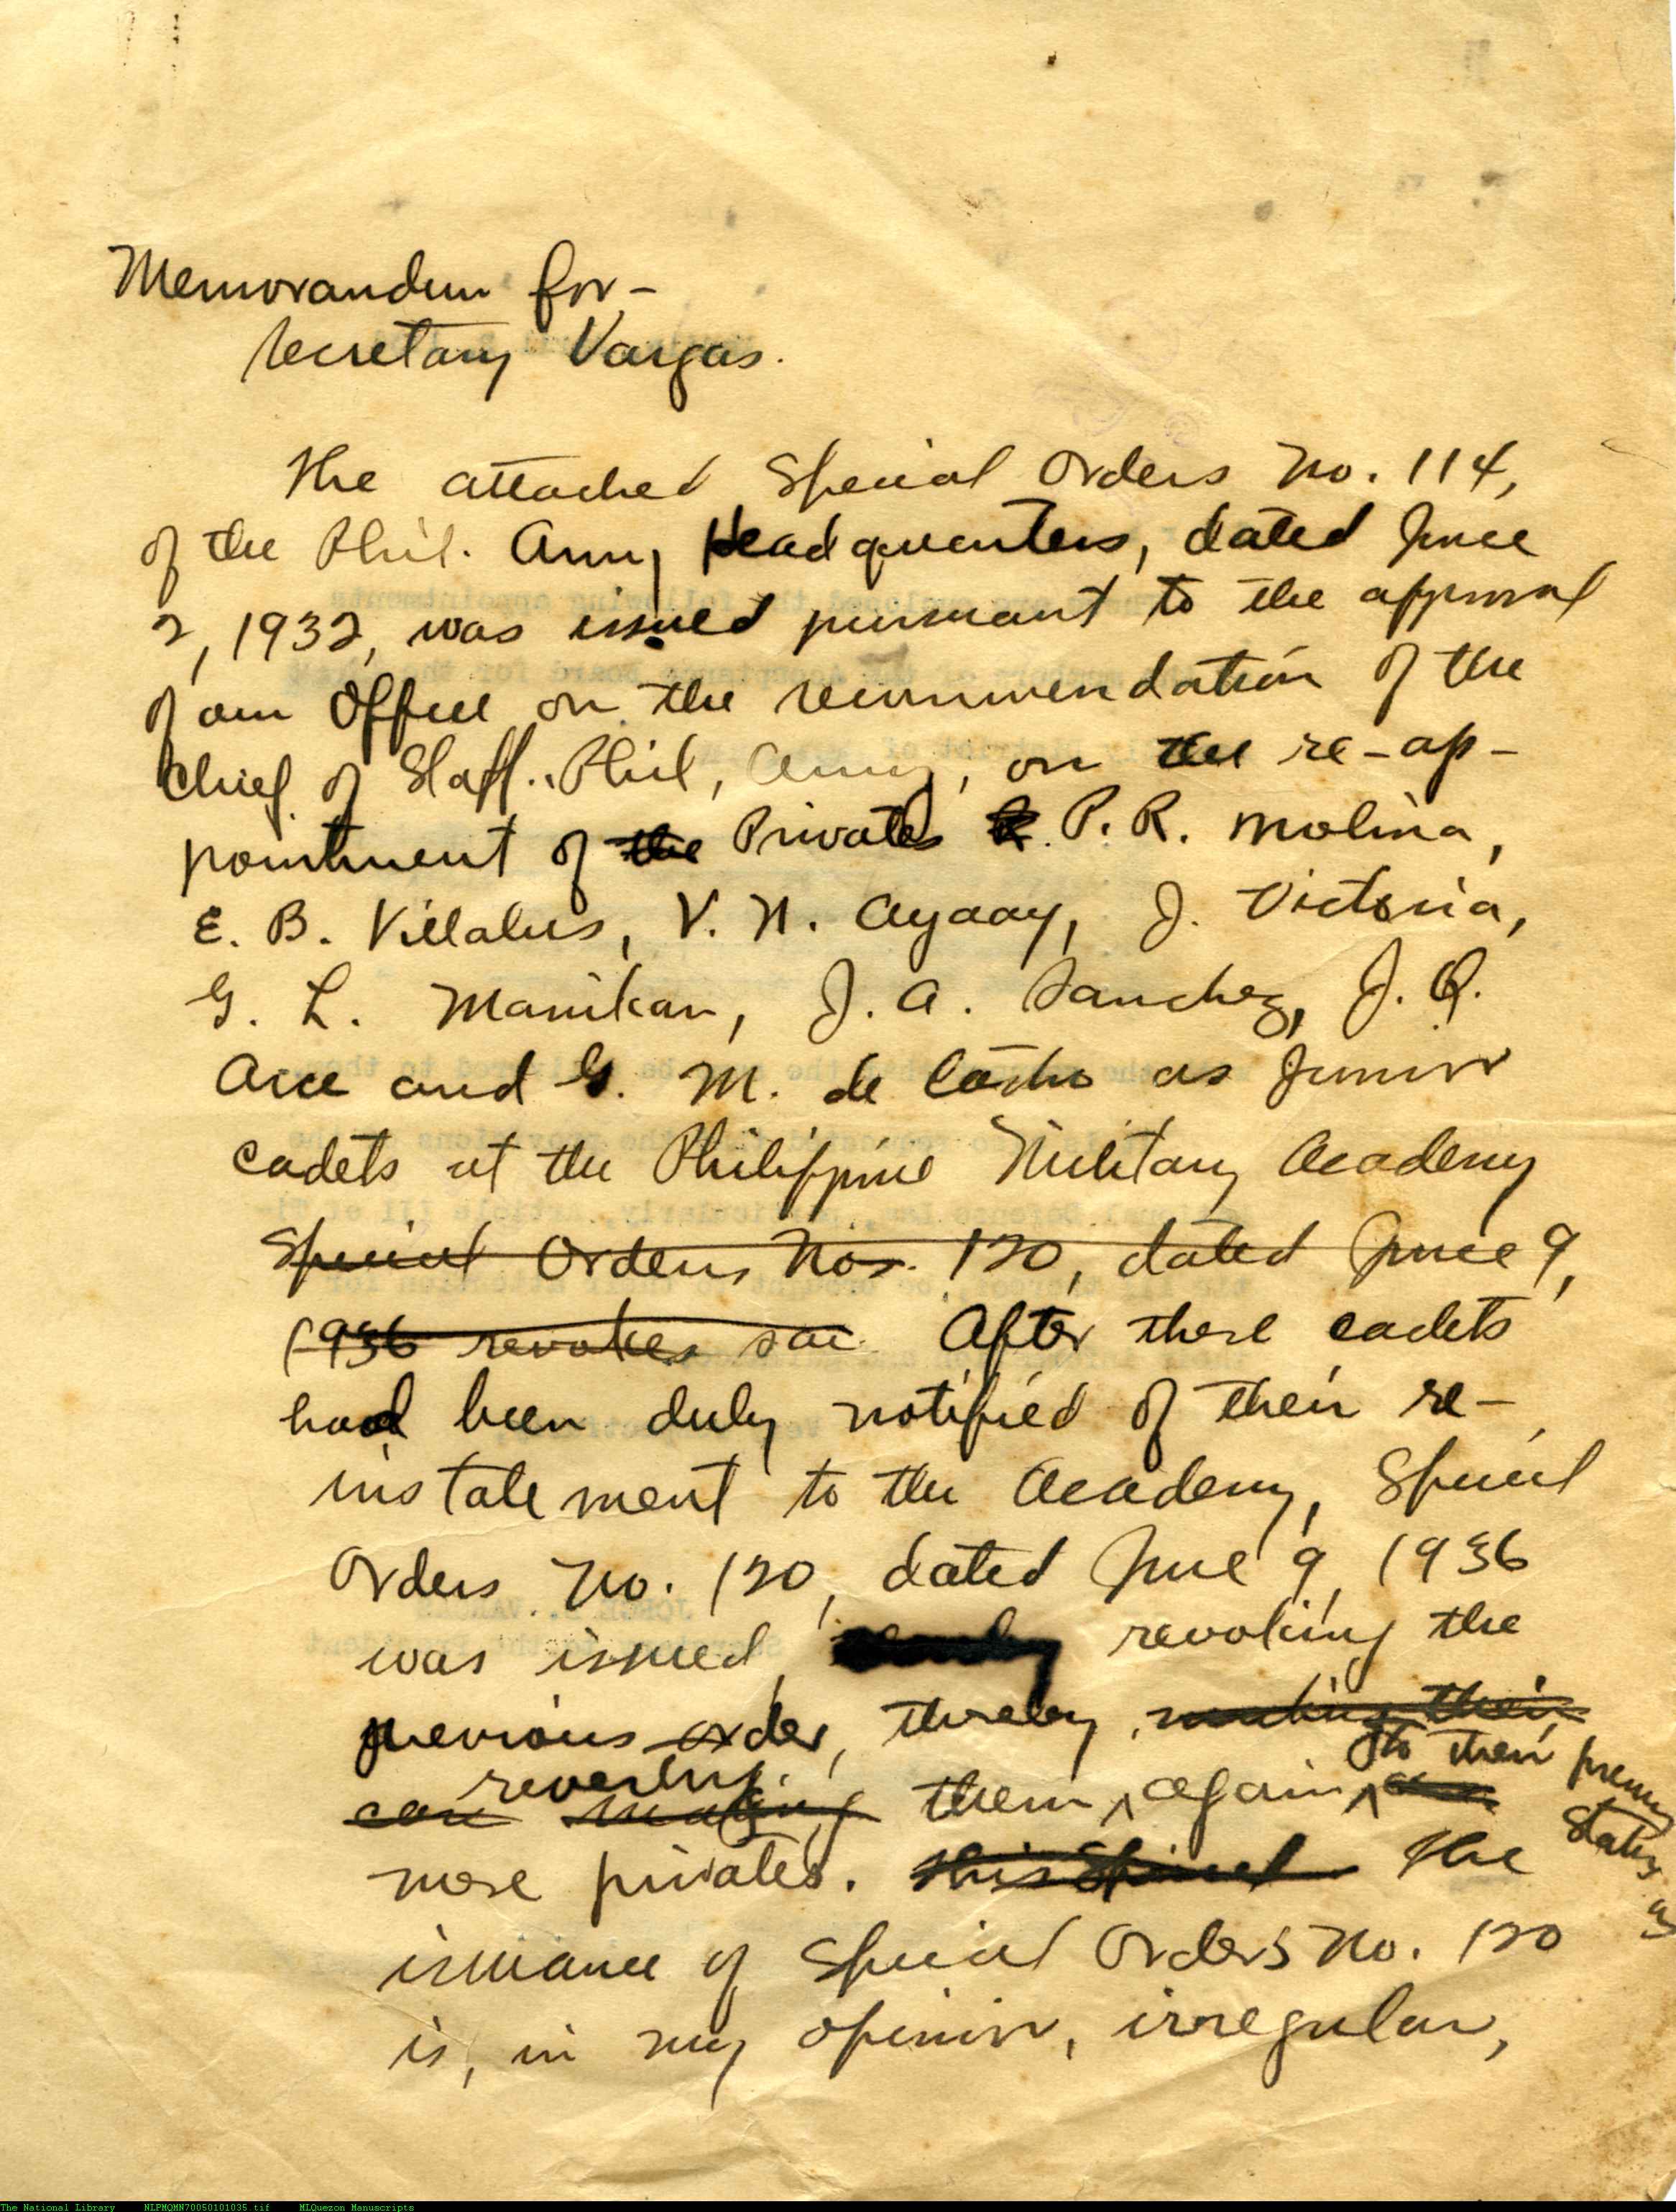 Memorandum for-
Secretary Vargas.
The attached Special Orders No. 114,
of the Phil. Army Headquarters, dated June
2, 1932, was issued pursuant to the approval
of our Office on the recommendation of the
Chief of Staff, Phil. Army, on the re-ap-
pointment of the Privates P. R. Molina,
E. B. Villalus, V. N. Agaay, J. Victoria,
G. L. Manikan, J. A. Sanchez, J. Q.
Arce and G. M. de Castro as Junior
cadets at the Philippine Military Academy
Special Orders Nos. 120, dated June 9,
1936 revokes sai After these cadets
had been duly notified of their re-
instatement to the Academy, Special
Orders No. 120, dated June 9, 1936
was issued, revoking the
previous order, thereby making their
to their previous
reverting
making them again
status as
mere privates. This Special The
issuance of Special Orders No. 120
is, in my opinion, irregular,
The National Library NLPMQMN70050101035.tif MLQuezon Manuscripts